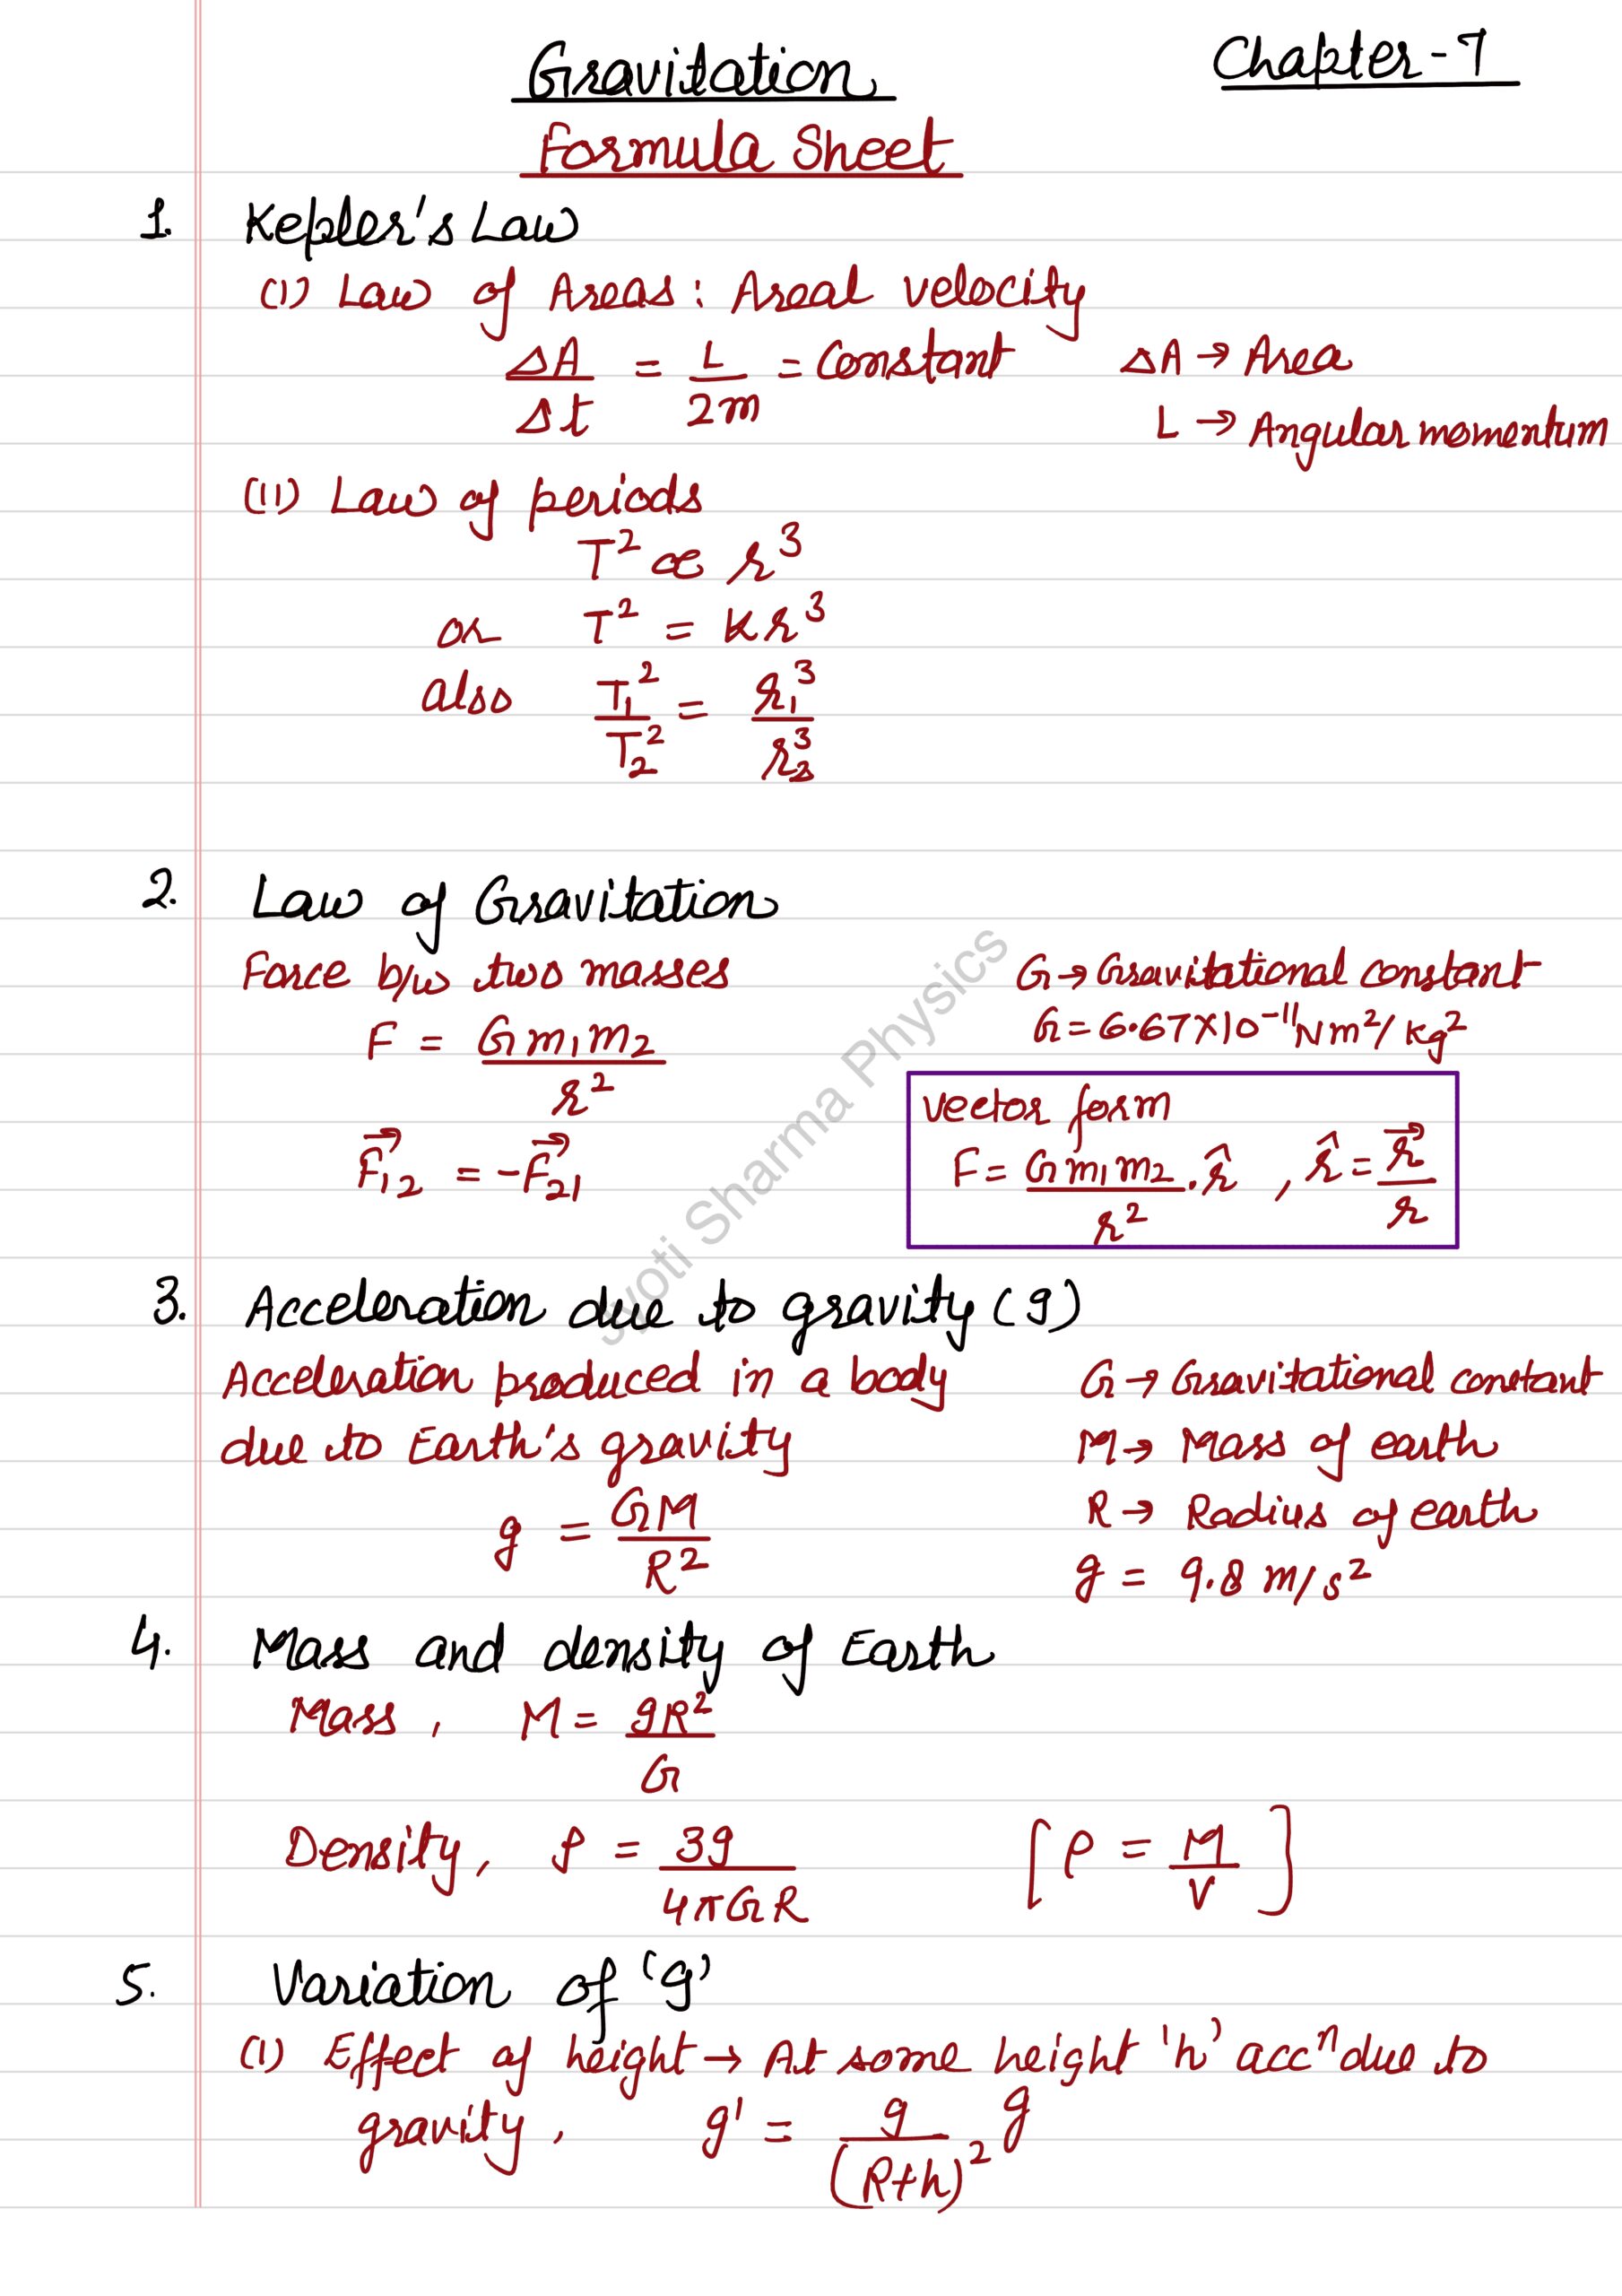 Gravitation
Chapter-7
Formula Sheet
1. Kepler's Law
(i) Law of Areas: Areal velocity
ΔA/Δt = L/2m = Constant
ΔA → Area
L → Angular momentum
(ii) Law of periods
T² ∝ r³
or T² = kr³
also T₁²/T₂² = r₁³/r₂³
2. Law of Gravitation
Force b/w two masses
G → Gravitational constant
F = Gm₁m₂/r²
G = 6.67×10⁻¹¹Nm²/kg²
F⃗₁₂ = -F⃗₂₁
vector form
F = Gm₁m₂/r² . r̂ , r̂ = r⃗/r
3. Acceleration due to gravity (g)
Acceleration produced in a body
due to Earth's gravity
g = GM/R²
G → Gravitational constant
M → Mass of earth
R → Radius of earth
g = 9.8 m/s²
4. Mass and density of Earth
Mass, M = gR²/G
Density, ρ = 3g/4πGR [ρ = M/V]
5. Variation of 'g'
(i) Effect of height → At some height 'h' accⁿ due to
gravity, g' = g/(R+h)² g
Jyoti Sharma Physics